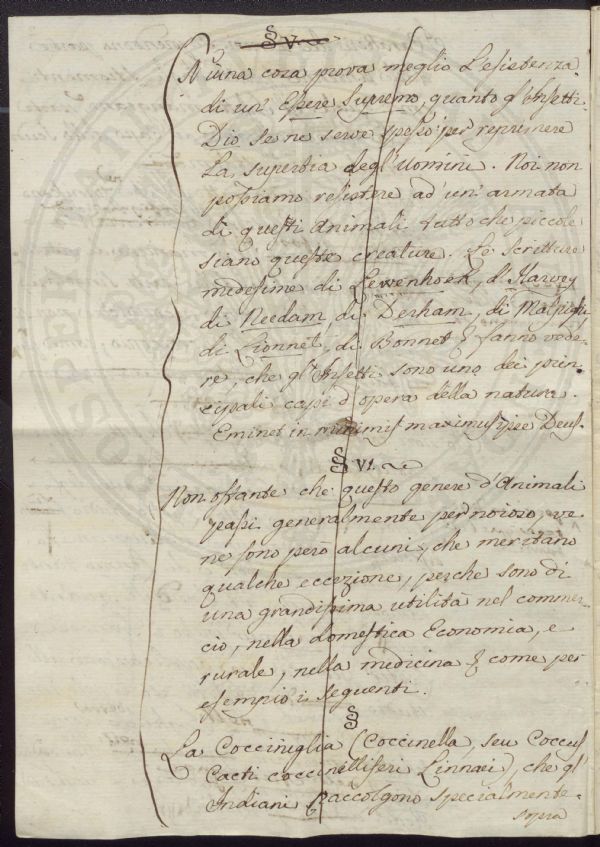 § V.
Niuna cosa prova meglio L'esistenza
di un' Essere Supremo, quanto gl'Insetti.
Dio se ne serve spesso per reprimere
La superbia degl'Uomini. Noi non
possiamo resistere ad'un'armata
di questi Animali tutto che piccole
siano queste creature. Le Scritture
medesime di Lewenhoek, d'Harvey
di Needam, di Derham, di Malpighi
di Lionnet, di Bonnet & fanno vede-
re, che gl'Insetti sono uno dei prin-
cipali capi d'opera della natura.
Eminet in minimis maximus ipse Deus.
§ VI.
Non ostante che questo genere d'Animali
passi generalmente per noioso, ve
ne sono però alcuni, che meritano
qualche eccezione, perche sono di
una grandissima utilità nel commer-
cio, nella domestica Economia, e
rurale, nella medicina & come per
esempio i seguenti.
§
La Cocciniglia (Coccinella, seu Coccus
Cacti coccinelliferi Linnaei), che gl'
Indiani raccolgono specialmente
sopra